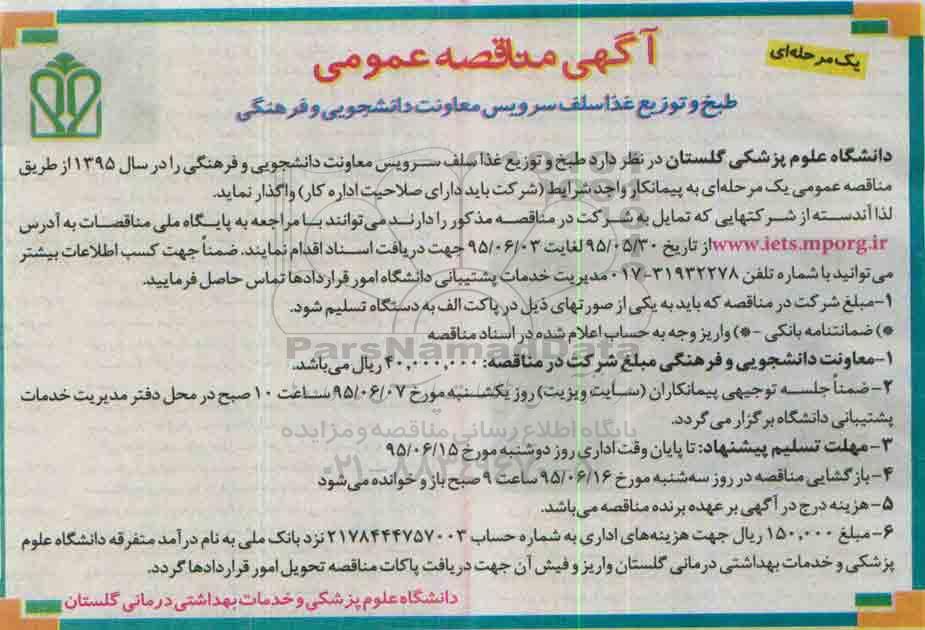 یک مرحله‌ای
آگهی مناقصه عمومی
طبخ و توزیع غذا سلف سرویس معاونت دانشجویی و فرهنگی
دانشگاه علوم پزشکی گلستان در نظر دارد طبخ و توزیع غذا سلف سرویس معاونت دانشجویی و فرهنگی را در سال ۱۳۹۵ از طریق
مناقصه عمومی یک مرحله‌ای به پیمانکار واجد شرایط (شرکت باید دارای صلاحیت اداره کار) واگذار نماید.
لذا آندسته از شرکتهایی که تمایل به شرکت در مناقصه مذکور را دارند می‌توانند با مراجعه به پایگاه ملی مناقصات به آدرس
www.iets.mporg.ir از تاریخ ۹۵/۰۵/۳۰ لغایت ۹۵/۰۶/۰۳ جهت دریافت اسناد اقدام نمایند. ضمناً جهت کسب اطلاعات بیشتر
می‌توانید با شماره تلفن ۳۱۹۳۲۲۷۸-۰۱۷ مدیریت خدمات پشتیبانی دانشگاه امور قراردادها تماس حاصل فرمایید.
۱-مبلغ شرکت در مناقصه که باید به یکی از صورتهای ذیل در پاکت الف به دستگاه تسلیم شود.
*) ضمانتنامه بانکی -*) واریز وجه به حساب اعلام شده در اسناد مناقصه
۱-معاونت دانشجویی و فرهنگی مبلغ شرکت در مناقصه: ۴۰,۰۰۰,۰۰۰ ریال می‌باشد.
۲-ضمناً جلسه توجیهی پیمانکاران (سایت ویزیت) روز یکشنبه مورخ ۹۵/۰۶/۰۷ ساعت ۱۰ صبح در محل دفتر مدیریت خدمات
پشتیبانی دانشگاه برگزار می گردد.
۳-مهلت تسلیم پیشنهاد: تا پایان وقت اداری روز دوشنبه مورخ ۹۵/۰۶/۱۵
۴-بازگشایی مناقصه در روز سه‌شنبه مورخ ۹۵/۰۶/۱۶ ساعت ۹ صبح باز و خوانده می‌شود
۵-هزینه درج در آگهی بر عهده برنده مناقصه می‌باشد.
۶-مبلغ ۱۵۰,۰۰۰ ریال جهت هزینه‌های اداری به شماره حساب ۲۱۷۸۴۴۴۷۵۷۰۰۳ نزد بانک ملی به نام درآمد متفرقه دانشگاه علوم
پزشکی و خدمات بهداشتی درمانی گلستان واریز و فیش آن جهت دریافت پاکات مناقصه تحویل امور قراردادها گردد.
دانشگاه علوم پزشکی و خدمات بهداشتی درمانی گلستان
ParsNamadData
پایگاه اطلاع رسانی مناقصه و مزایده